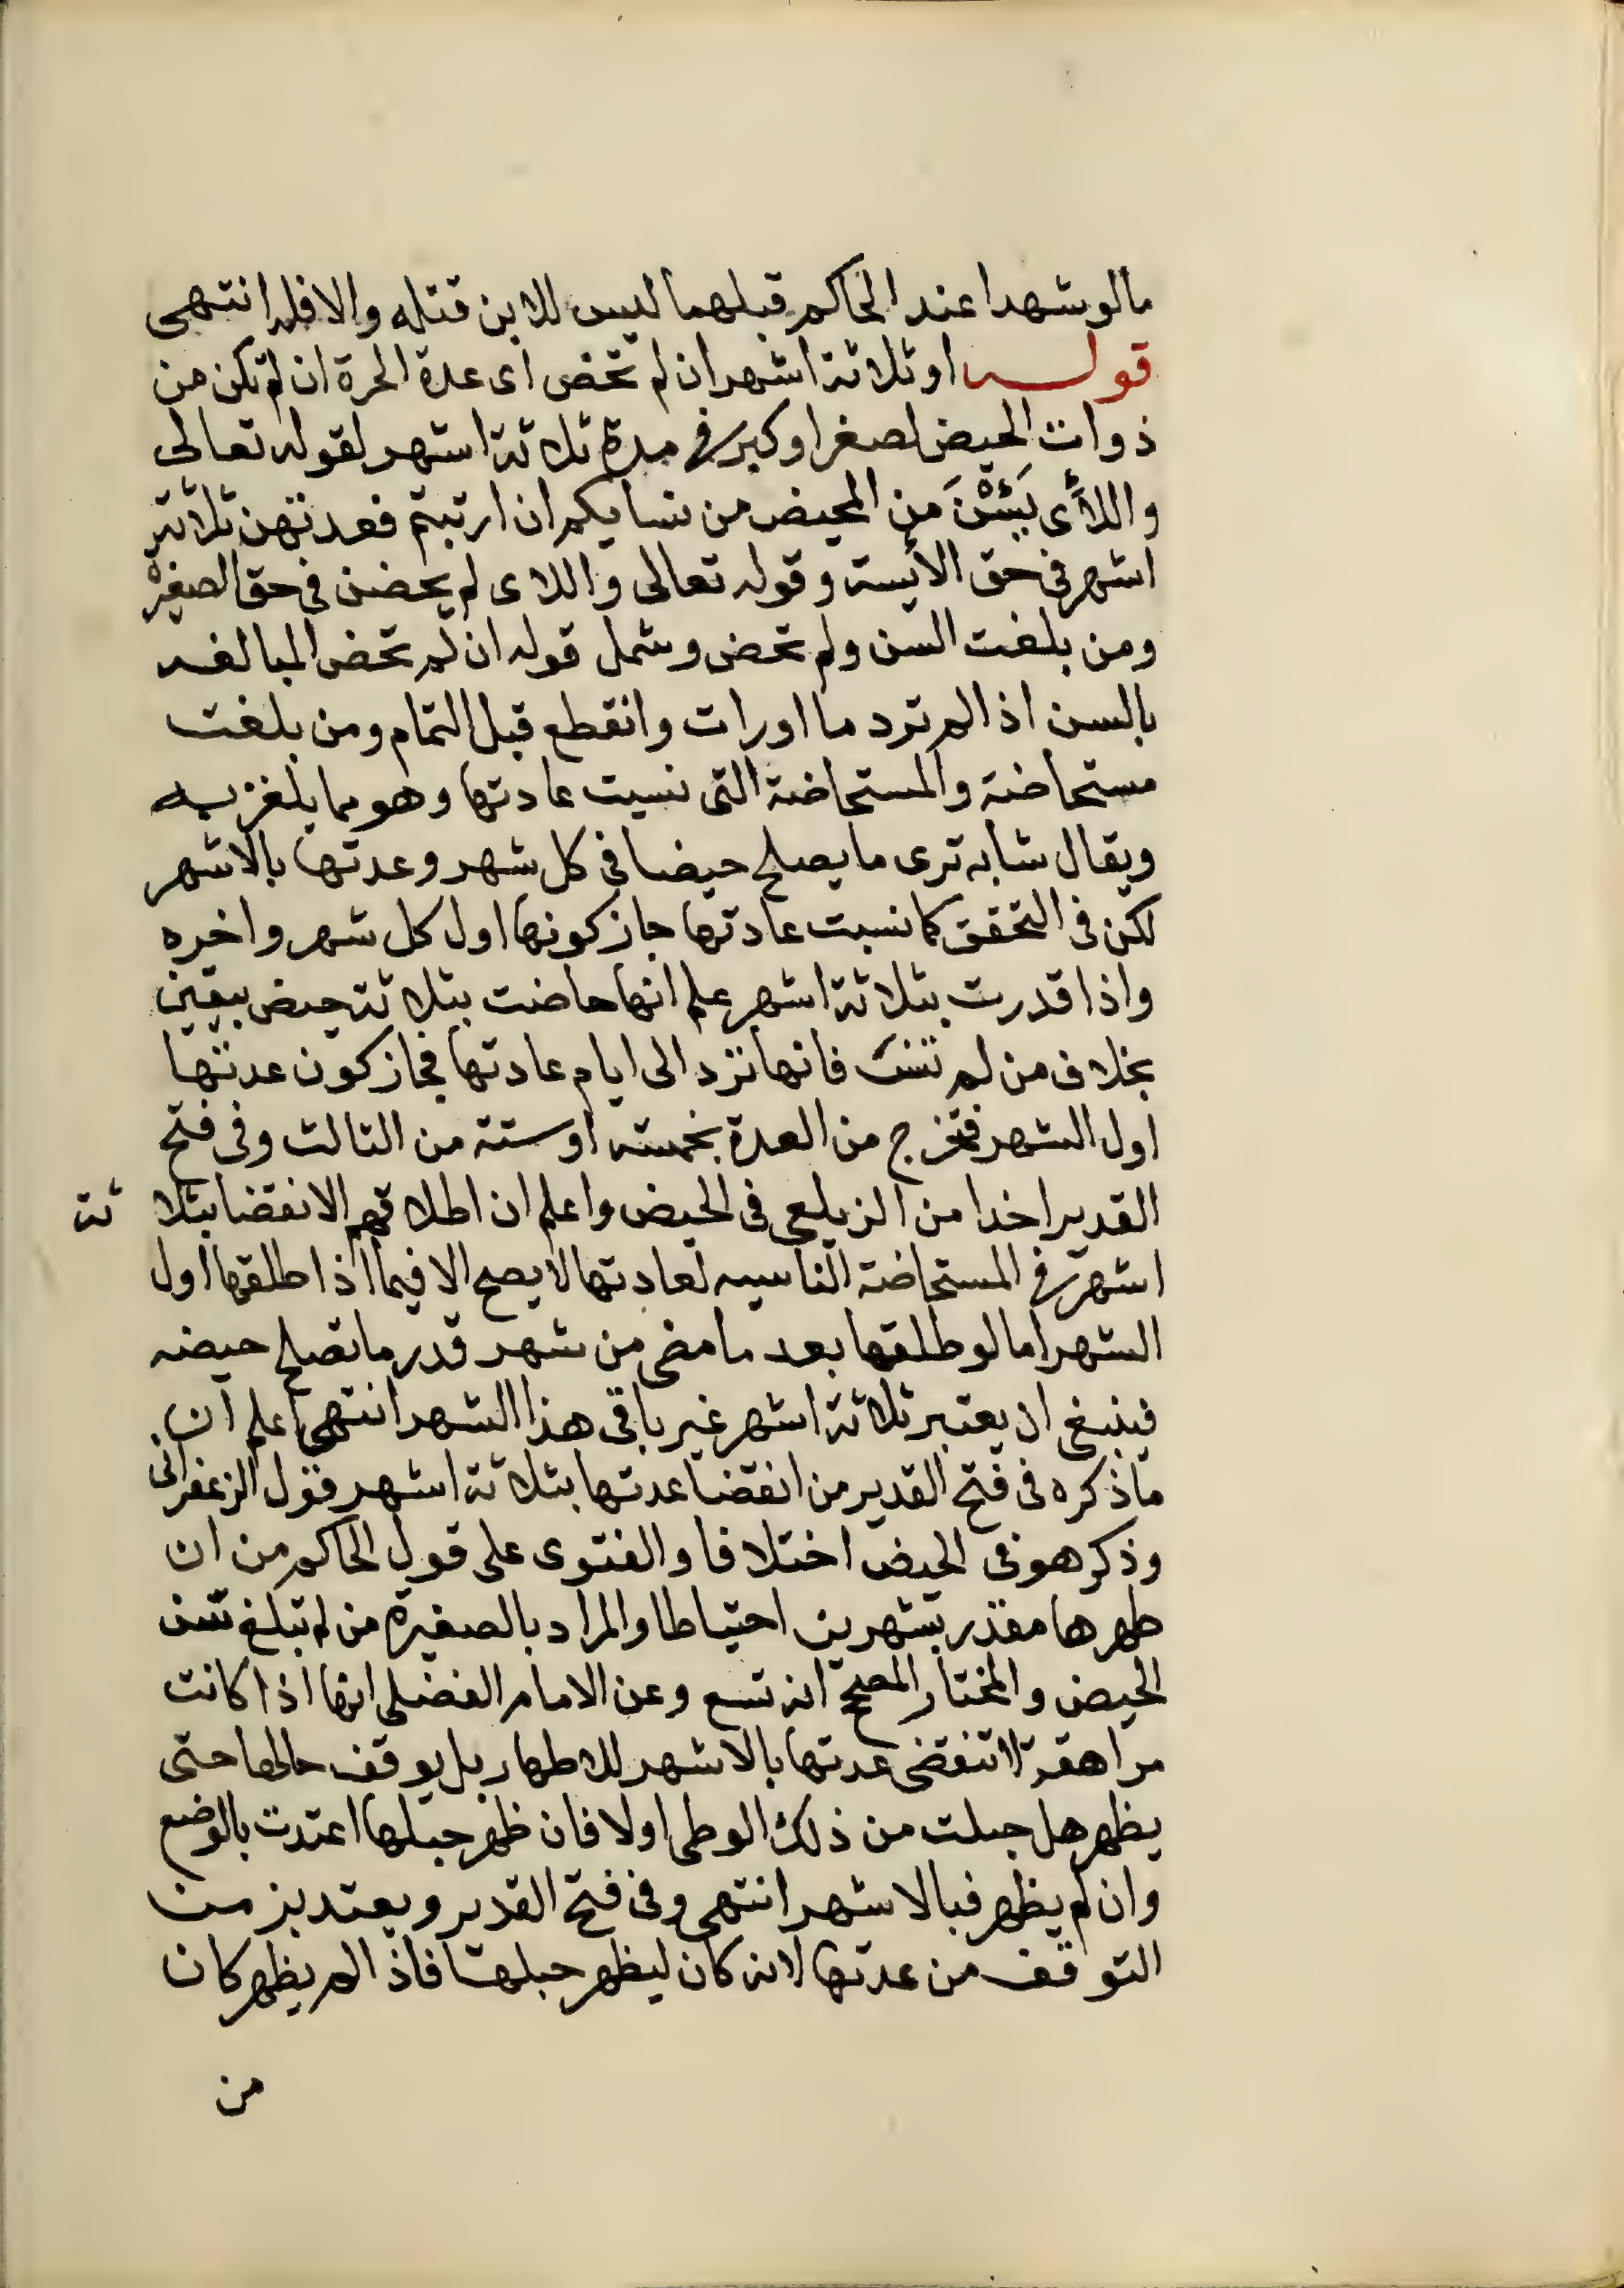 مالو شهدا عند الحاكم قبلهما ليس للابن قتله والا فله انتهى
قوله او ثلاثة اشهر ان لم تحض اى عدة الحرة ان لم تكن من
ذوات الحيض لصغر او كبر فى مدة ثلاثة اشهر لقوله تعالى
واللاَّى يَئِسْنَ من المحيض من نسايكم ان ارتبتم فعدتهن ثلاثة
اشهر فى حق الأيسة وقوله تعالى واللاى لم يحضن فى حق الصغيرة
ومن بلغت السن ولم تحض وشمل قوله ان لم تحض البالغه
بالسن اذا لم ترد ما او رات وانقطع قبل التمام ومن بلغت
مستحاضة والمستحاضة التى نسيت عادتها وهو مما يلغز به
ويقال شابه ترى ما يصلح حيضا فى كل شهر وعدتها بالاشهر
لكن فى التحقق كما نسيت عادتها جاز كونها اول كل شهر واخره
واذا قدرت بثلاثة اشهر علم انها حاضت بثلاثة حيض بيقين
بخلاف من لم تنس فانها ترد الى ايام عادتها فجاز كون عدتها
اول الشهر فتخرج من العدة بخمسة او ستة من الثالث وفى فتح
القدير اخدا من الزيلعى فى الحيض واعلم ان اطلاقهم الانقضا بثلاثة
اشهر فى المستحاضة الناسيه لعادتها لا يصح الا فيما اذا طلقها اول
الشهر اما لو طلقها بعد ما مضى من شهر قدر ما تصلح حيضه
فينبغى ان يعتبر ثلاثة اشهر غير باقى هذا الشهر انتهى اعلم ان
ماذكره فى فتح القدير من انقضا عدتها بثلاثة اشهر قول الزعفرانى
وذكر هو فى الحيض اختلافا والفتوى على قول الحاكم من ان
طهرها مقدر بشهرين احتياطا والمراد بالصغيرة من لم تبلغ سن
الحيض والمختار المصحح انه تسع وعن الامام الفضلى انها اذا كانت
مراهقة لا تنقضى عدتها بالاشهر للاطهار بل يوقف حالها حتى
يظهر هل حبلت من ذلك الوطى او لا فان ظهر حبلها اعتدت بالوضع
وان لم يظهر فبالاشهر انتهى وفى فتح القدير ويعتد بزمن
التوقف من عدتها لانه كان ليظهر حبلها فاذا لم يظهر كان
من